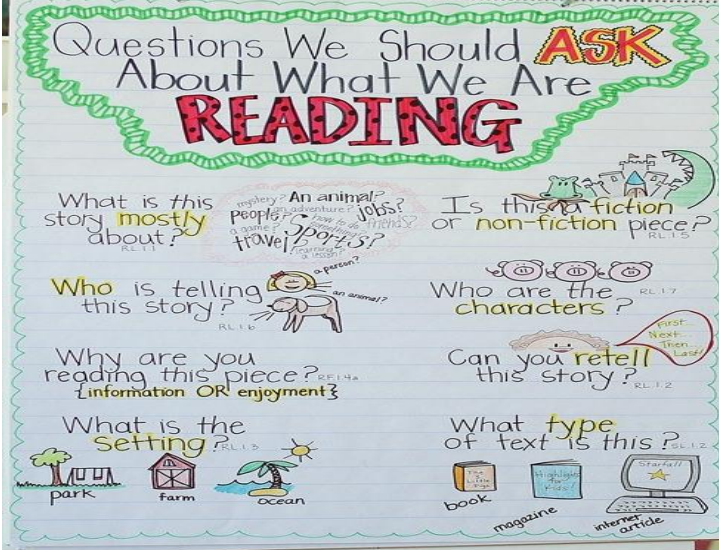 Questions We Should ASK
About What We Are
READING
What is this
story mostly
about?
RL.1.1
mystery? An animal?
an adventure? jobs?
people? how to do
something? friends?
a game? Sports?
travel?
learning
a lesson?
Is this a fiction
or non-fiction piece?
RL.1.5
Who is telling
this story?
RL.1.6
a person?
an animal?
Who are the
RL.1.7
characters?
Why are you
reading this piece? RF.1.4a
{information OR enjoyment}
Can you retell
this story?
RL.1.2
First...
Next...
Then...
Last!
What is the
setting? RL.1.3
park
farm
ocean
What type
of text is this? SL.1.2
The
3
Little
Pigs
book
Highlights
for
Kids!
magazine
Starfall
internet
article